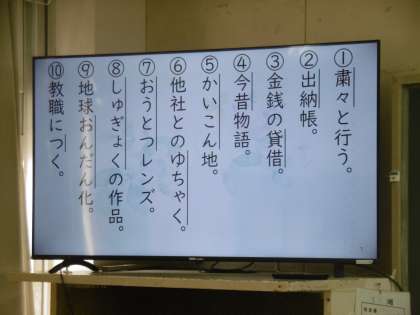 ①粛々と行う。
②出納帳。
③金銭の貸借。
④今昔物語。
⑤かいこん地。
⑥他社とのゆちゃく。
⑦おうとつレンズ。
⑧しゅぎょくの作品。
⑨地球おんだん化。
⑩教職につく。